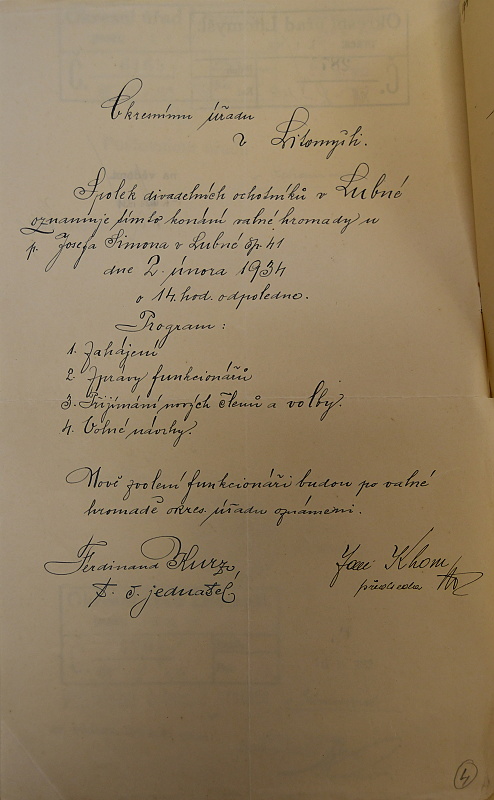 Okresnímu úřadu
v Litomyšli.
Spolek divadelních ochotníků v Lubné
oznamuje tímto konání valné hromady u
p. Josefa Šimona v Lubné čp. 41
dne 2. února 1934
o 14. hod. odpoledne.
Program:
1. Zahájení
2. Zprávy funkcionářů
3. Přijímání nových členů a volby.
4. Volné návrhy.
Nově zvolení funkcionáři budou po valné
hromadě okres. úřadu oznámeni.
Ferdinand Kurz,
t. č. jednatel
Jan
předseda
4